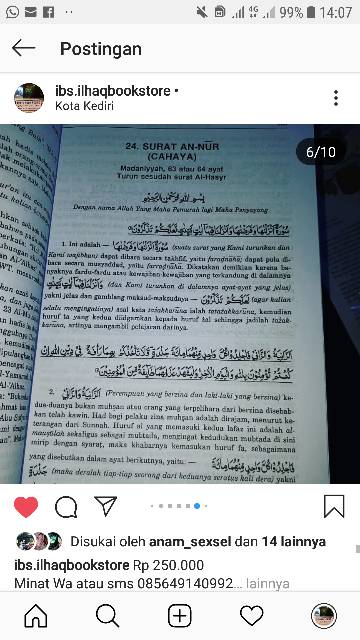 4G 99% 14:07
Postingan
ibs.ilhaqbookstore •
Kota Kediri
6/10
24. SURAT AN-NŪR
(CAHAYA)
Madaniyyah, 63 atau 64 ayat
Turun sesudah surat Al-Hasyr
بِسْمِ اللهِ الرَّحْمٰنِ الرَّحِيْمِ
Dengan nama Allah Yang Maha Pemurah lagi Maha Penyayang
سُوْرَةٌ اَنْزَلْنٰهَا وَفَرَضْنٰهَا وَاَنْزَلْنَا فِيْهَآ اٰيٰتٍۢ بَيِّنٰتٍ لَّعَلَّكُمْ تَذَكَّرُوْنَ
1. Ini adalah — سُوْرَةٌ اَنْزَلْنٰهَا وَفَرَضْنٰهَا — (suatu surat yang Kami turunkan dan
Kami wajibkan) dapat dibaca secara takhfif, yaitu faradnāhā; dapat pula di-
baca secara musyaddad, yaitu farradnāhā. Dikatakan demikian karena ba-
nyaknya fardu-fardu atau kewajiban-kewajiban yang terkandung di dalamnya
(dan Kami turunkan di dalamnya ayat-ayat yang jelas)
yakni jelas dan gamblang maksud-maksudnya — لَعَلَّكُمْ تَذَكَّرُوْنَ (agar kalian
selalu mengingatnya)
huruf ta yang kedua diidgamkan kepada huruf żal sehingga jadilah
artinya mengambil pelajaran darinya.
اَلزَّانِيَةُ وَالزَّانِيْ فَاجْلِدُوْا كُلَّ وَاحِدٍ مِّنْهُمَا مِائَةَ جَلْدَةٍ وَّلَا تَأْخُذْكُمْ بِهِمَا رَأْفَةٌ فِيْ دِيْنِ اللهِ اِنْ
كُنْتُمْ تُؤْمِنُوْنَ بِاللهِ وَالْيَوْمِ الْاٰخِرِ وَلْيَشْهَدْ عَذَابَهُمَا طَآئِفَةٌ مِّنَ الْمُؤْمِنِيْنَ
2. اَلزَّانِيَةُ وَالزَّانِيْ (Perempuan yang berzina dan laki-laki yang berzina) ke-
dua-duanya bukan muhsan atau orang yang terpelihara dari berzina disebab-
kan telah kawin. Had bagi pelaku zina muhsan adalah dirajam, menurut ke-
terangan dari Sunnah. Huruf al yang memasuki kedua lafaz ini adalah al-
maushūlah sekaligus sebagai mubtada, mengingat kedudukan mubtada di sini
mirip dengan syarat, maka khabarnya kemasukan huruf fa, sebagaimana
yang disebutkan dalam ayat berikutnya, yaitu — فَاجْلِدُوْا كُلَّ وَاحِدٍ مِّنْهُمَا مِائَةَ
جَلْدَةٍ (maka deralah tiap-tiap seorang dari keduanya seratus kali dera) yakni
Disukai oleh anam_sexsel dan 14 lainnya
ibs.ilhaqbookstore Rp 250.000
Minat Wa atau sms 085649140992... lainnya